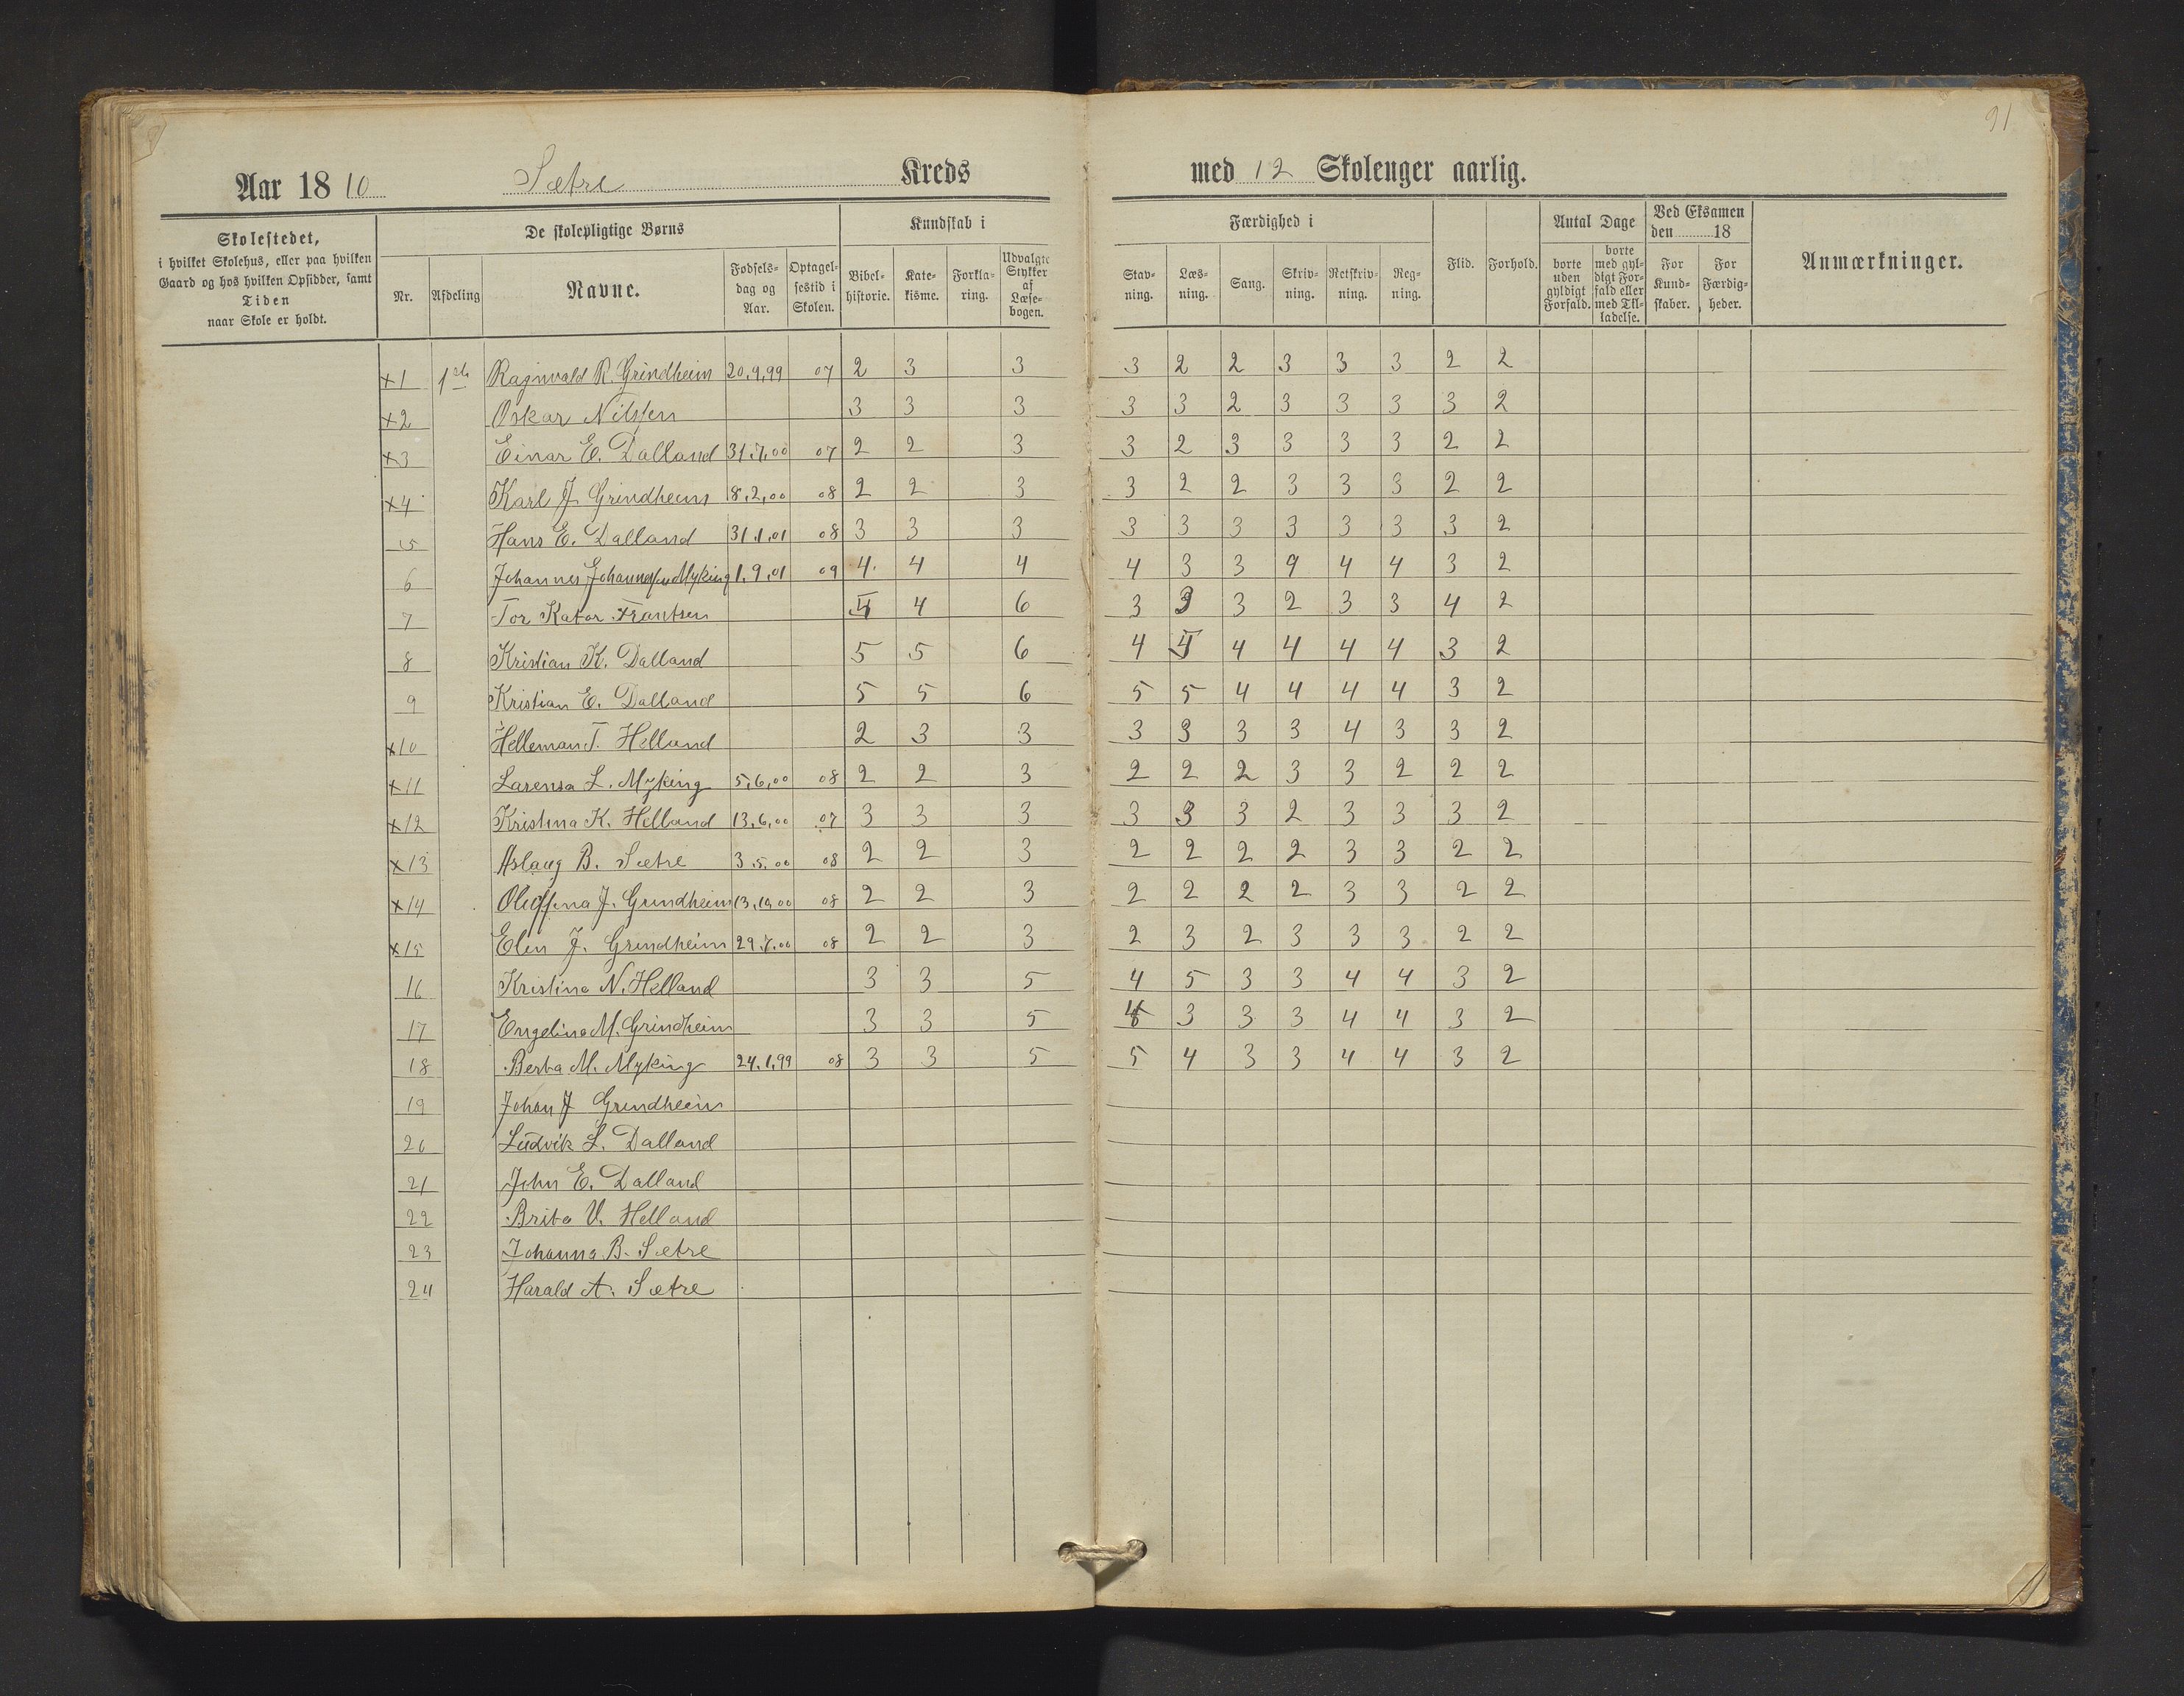 91
Aar 18 10 Sætre Kreds med 12 Skoleuger aarlig.
Skolestedet,
i hvilket Skolehus, eller paa hvilken
Gaard og hos hvilken Opsidder, samt
Tiden
naar Skole er holdt.
De skolepligtige Børns
Nr. Afdeling Navne. Fødsels-
dag og
Aar. Optagel-
sestid i
Skolen.
Kundskab i
Bibel-
historie. Kate-
kisme. Forkla-
ring. Udvalgte
Stykker
af
Læse-
bogen.
Færdighed i
Stav-
ning. Læs-
ning. Sang. Skriv-
ning. Retskriv-
ning. Reg-
ning.
Flid. Forhold.
Antal Dage
borte
uden
gyldigt
Forfald. borte
med gyl-
digt For-
fald eller
med Til-
ladelse.
Ved Eksamen
den 18
For
Kund-
skaber. For
Færdig-
heder.
Anmærkninger.
x1 Ragnvald R. Grindheim 20,9,99 07 2 3 3 3 2 2 3 3 3 2 2
x2 Oskar Nilssen 3 3 3 3 3 2 3 3 3 3 2
x3 Einar E. Dalland 31,7,00 07 2 2 3 3 2 3 3 3 3 2 2
x4 Karl J. Grindheim 8,2,00 08 2 2 3 3 2 2 3 3 3 2 2
5 Hans E. Dalland 31,1,01 08 3 3 3 3 3 3 3 3 3 3 2
6 Johannes Johannessen Myking 1,9,01 09 4 4 4 4 3 3 9 4 4 3 2
7 Tor Frantsen 4 4 6 3 3 3 2 3 3 4 2
8 Kristian K. Dalland 5 5 6 4 4 4 4 4 3 2
9 Kristian E. Dalland 5 5 6 5 5 4 4 4 4 3 2
x10 Helleman T. Helland 2 3 3 3 3 3 3 4 3 3 2
x11 Larensa L. Myking 5,6,00 08 2 2 3 2 2 2 3 3 2 2 2
x12 Kristina K. Helland 13,6,00 07 3 3 3 3 3 3 2 3 3 3 2
x13 Aslaug B. Sætre 3.5.00 08 2 2 3 2 2 2 2 3 3 2 2
x14 J. Grindheim 13,10,00 08 2 2 3 2 2 2 2 3 3 2 2
x15 Elen J. Grindheim 29.7.00 08 2 2 3 2 3 2 3 3 3 2 2
16 Kristina N. Helland 3 3 5 4 5 3 3 4 4 3 2
17 Engelina M. Grindheim 3 3 5 3 3 3 4 4 3 2
18 Berta M. Myking 24,1,99 08 3 3 5 5 4 3 3 4 4 3 2
19 Johan J Grindheim
20 Ludvik L. Dalland
21 John E. Dalland
22 Brita V. Helland
23 Johanna B. Sætre
24 Harald A. Sætre